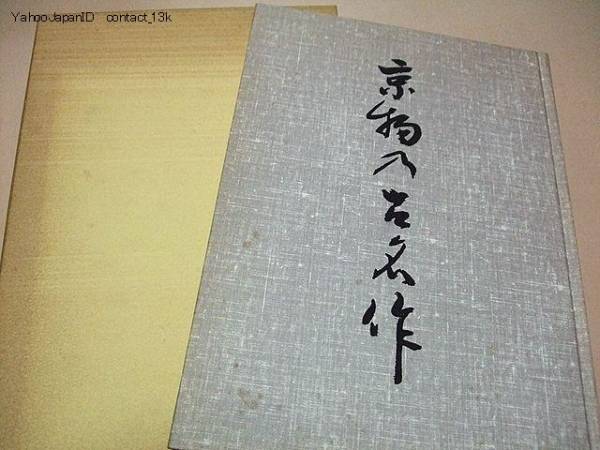 YahooJapanID contact_13k
京物乃古名作